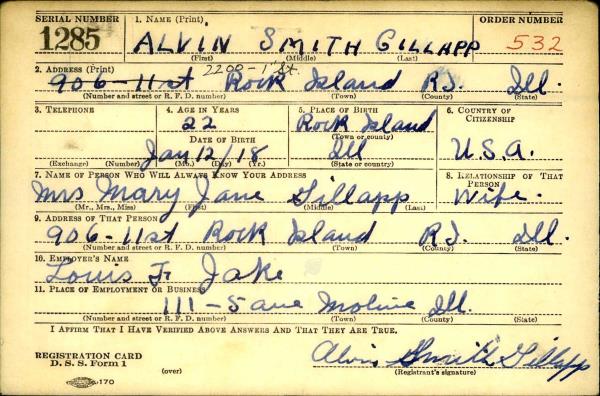 SERIAL NUMBER 1. NAME (Print) ORDER NUMBER
1285 ALVIN SMITH GILLAPP 532
(First) (Middle) (Last)
2. ADDRESS (Print) 2200-1" St.
906-11st Rock Island R.I. Ill.
(Number and street or R. F. D. number) (Town) (County) (State)
3. TELEPHONE 4. AGE IN YEARS 5. PLACE OF BIRTH 6. COUNTRY OF CITIZENSHIP
22 Rock Island
DATE OF BIRTH (Town or county)
Jan 12/18 Ill U.S.A.
(Exchange) (Number) (Mo.) (Day) (Yr.) (State or country)
7. NAME OF PERSON WHO WILL ALWAYS KNOW YOUR ADDRESS 8. RELATIONSHIP OF THAT PERSON
Mrs Mary Jane Gillapp Wife.
(Mr., Mrs., Miss) (First) (Middle) (Last)
9. ADDRESS OF THAT PERSON
906-11st Rock Island R.I. Ill.
(Number and street or R. F. D. number) (Town) (County) (State)
10. EMPLOYER'S NAME
Louis F. Jake
11. PLACE OF EMPLOYMENT OR BUSINESS
111-5 ave Moline Ill.
(Number and street or R. F. D. number) (Town) (County) (State)
I AFFIRM THAT I HAVE VERIFIED ABOVE ANSWERS AND THAT THEY ARE TRUE.
REGISTRATION CARD Alvin Smith Gillapp
D. S. S. Form 1 (over) (Registrant's signature)